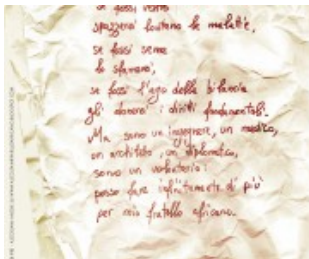 se fossi vento
spazzerei lontano le malattie,
se fossi seme
lo sfamerei,
se fossi l'ago della bilancia
gli darei i diritti fondamentali.
Ma sono un ingegnere, un medico,
un architetto, un diplomatico,
sono un volontario:
posso fare infinitamente di più
per mio fratello africano.